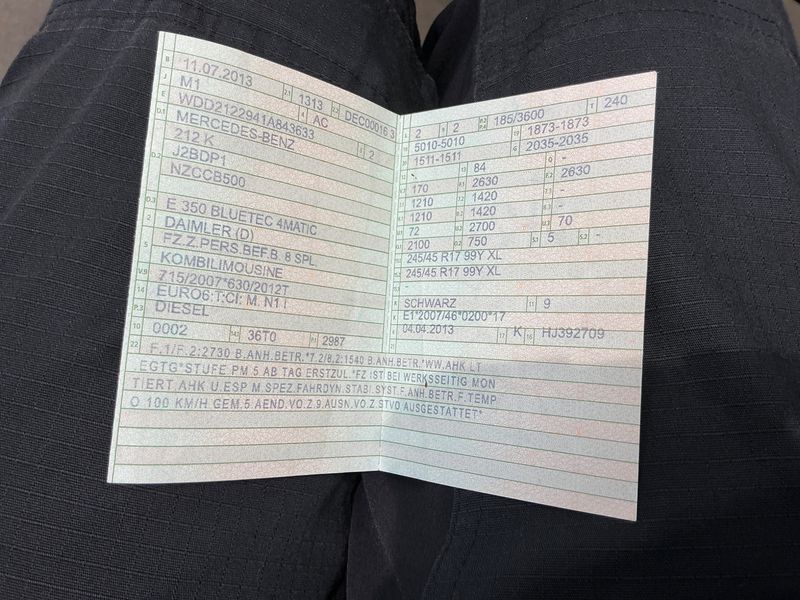 B 11.07.2013 2.1 1313 2.2 DEC00016 3
J M1 4 AC
E WDD2122941A843633
D.1 MERCEDES-BENZ 2
212 K
D.2 J2BDP1
NZCCB500
D.3 E 350 BLUETEC 4MATIC
2 DAIMLER (D)
5 FZ.Z.PERS.BEF.B. 8 SPL
KOMBILIMOUSINE
V.9 715/2007*630/2012T
14 EURO6;T;CI; M, N1 I
P.3 DIESEL
10 0002 14.1 36T0 P.1 2987
L 2 9 2 P.2 P.4 185/3600 T 240
5010-5010 19 1873-1873
1511-1511 G 2035-2035
- 13 84 Q -
170 2630 F.2 2630
1210 1420 -
1210 1420 -
72 2700 70
2100 750 S.1 5 S.2 -
245/45 R17 99Y XL
245/45 R17 99Y XL
-
R SCHWARZ 11 9
K E1*2007/46*0200*17
6 04.04.2013 17 K 16 HJ392709
22 F.1/F.2:2730 B.ANH.BETR.*7.2/8.2:1540 B.ANH.BETR.*WW.AHK LT
EGTG*STUFE PM 5 AB TAG ERSTZUL.*FZ IST BEI WERKSSEITIG MON
TIERT.AHK U.ESP M.SPEZ.FAHRDYN.STABI.SYST.F.ANH.BETR.F.TEMP
O 100 KM/H GEM.5 AEND.VO.Z.9.AUSN.VO.Z.STVO AUSGESTATTET*